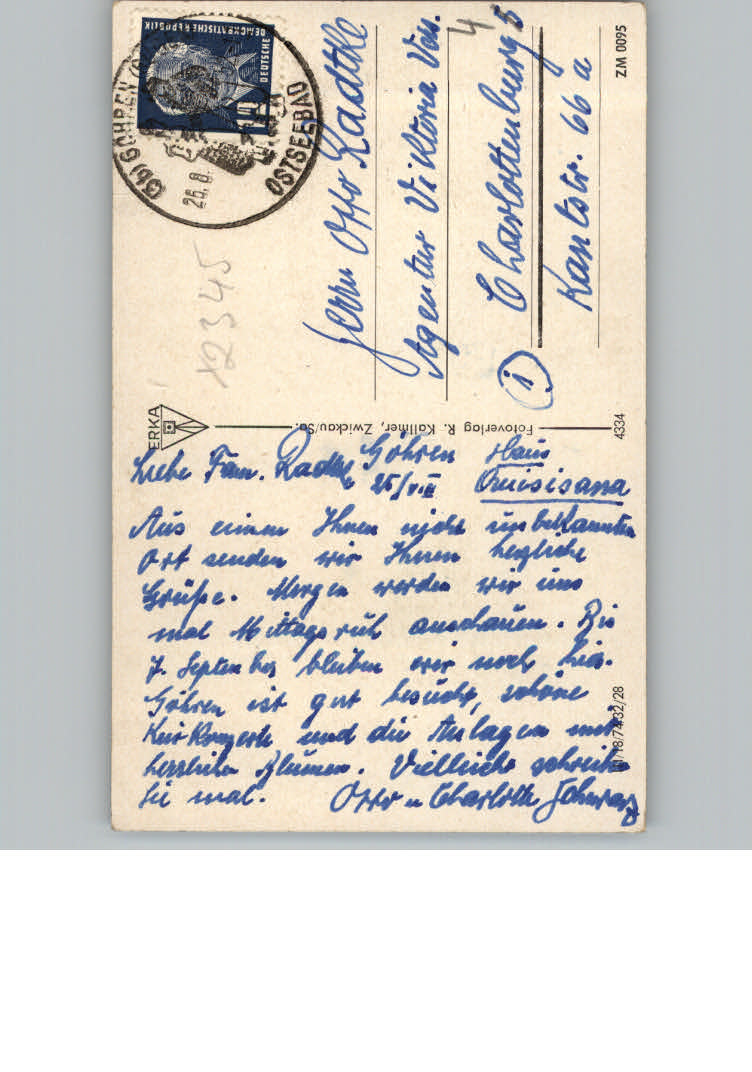 DEUTSCHE
DEMOKRATISCHE REPUBLIK
(3b) GÖHREN
OSTSEEBAD
26.8.
Herrn Otto Radtke
Agentur Viktoria Vers.
4
Charlottenburg 5
Kantstr. 66 a
1
ZM 0095
x2345
ERKA
Fotoverlag R. Kallmer, Zwickau/Sa.
4334
Göhren Haus
Liebe Fam. Radtke 25/VIII Quisisana
Aus einem Ihnen nicht unbekannten
Ort senden wir Ihnen herzliche
Grüße. Morgen werden wir uns
mal Mittagsruh anschauen. Bis
7. September bleiben wir noch hier.
Göhren ist gut besucht, schöne
Kurkonzerte und die Anlagen mit
herrlichen Blumen. Vielleicht schreiben
Sie mal. Otto u Charlotte Schwarz
/18/74/32/28